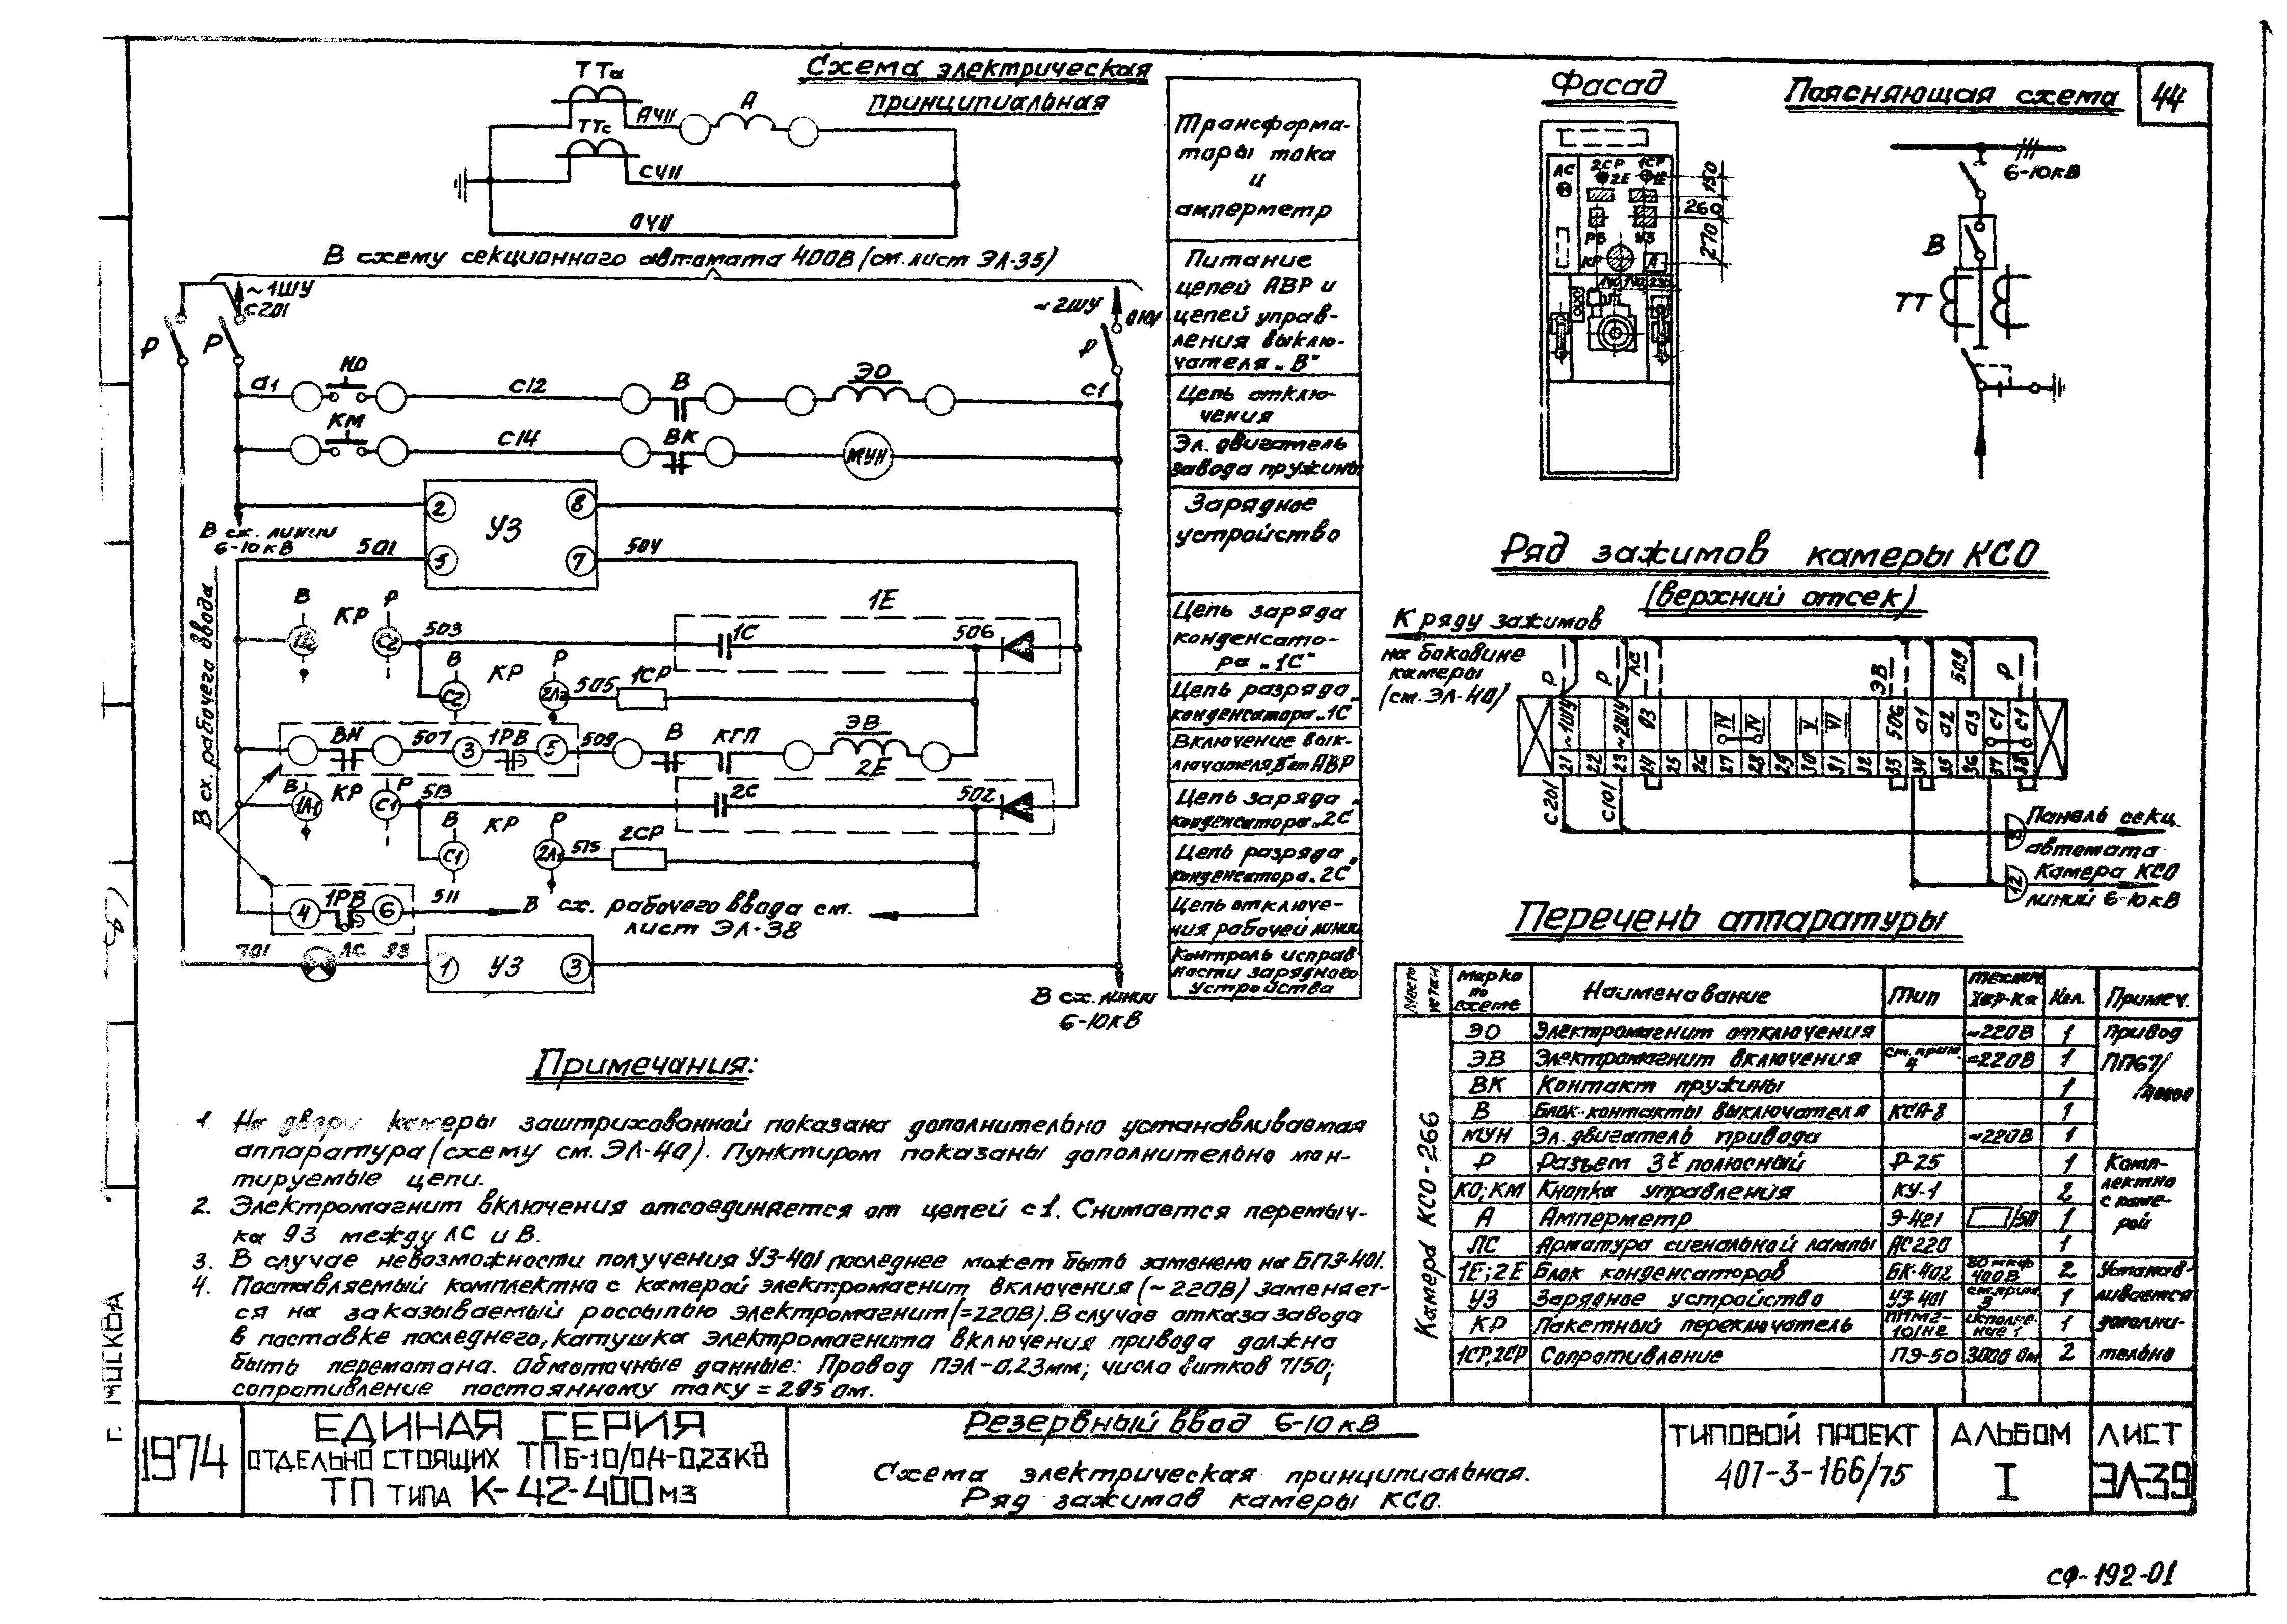 Схема электрическая
принципиальная
ТТа
А411
А
ТТс
С411
0411
В схему секционного автомата 400В (см. лист ЭЛ-35)
~1ШУ
С201
~2ШУ
Р
Р
Р
а1
КО
С12
В
ЭО
С1
КМ
С14
ВК
МУН
2
УЗ
8
5
7
В сх. линии
6-10кВ
501
504
В сх. рабочего ввода
В
КР
Р
С2
503
1С
1Е
506
В
С2
КР
Р
505
1СР
ВН
507
3
1РВ
5
509
В
КГП
ЭВ
2Е
В
1Л1
КР
Р
С1
513
2С
502
В
С1
КР
Р
2Л1
515
2СР
4
1РВ
6
511
В сх. рабочего ввода см.
лист ЭЛ-38
701
ЛС
93
1
УЗ
3
В сх. линии
6-10кВ
Трансформа-
торы тока
и
амперметр
Питание
цепей АВР и
цепей управ-
ления выклю-
чателя „В"
Цепь отклю-
чения
Эл. двигатель
завода пружины
Зарядное
устройство
Цепь заряда
конденсато-
ра „1С"
Цепь разряда
конденсатора „1С"
Включение вык-
лючателя „В" от АВР
Цепь заряда
конденсатора „2С"
Цепь разряда
конденсатора „2С"
Цепь отключе-
ния рабочей линии
Контроль исправ-
ности зарядного
устройства
Фасад
ЛС
2СР
1СР
2Е
1Е
РВ
УЗ
КР
А
150
260
270
Поясняющая схема
44
6-10кВ
В
ТТ
Ряд зажимов камеры КСО
(верхний отсек)
К ряду зажимов
на боковине
камеры
(см. ЭЛ-40)
Р
Р
ЛС
ЭВ
509
Р
~1ШУ
~2ШУ
93
IV
IV
V
VI
506
а1
а2
а3
С1
С1
21
22
23
24
25
26
27
28
29
30
31
32
33
34
35
36
37
38
С201
С101
Панель секц.
автомата
12
Камера КСО
линий 6-10кВ
Перечень аппаратуры
Место устан.
Марка по схеме
Наименование
Тип
Технич. хар-ка
Кол.
Примеч.
Камера КСО-266
ЭО Электромагнит отключения ~220В 1 Привод
ЭВ Электромагнит включения см. прим. 4 =220В 1 ПП67/
ВК Контакт пружины 1
В Блок-контакты выключателя КСА-8 1
МУН Эл. двигатель привода ~220В 1
Р Разъем 3х полюсный Р-25 1 Комп-
КО; КМ Кнопка управления КУ-1 2 лектно
с каме-
А Амперметр Э-421 /50 1 рой
ЛС Арматура сигнальной лампы АС220 1
1Е; 2Е Блок конденсаторов БК-402 80 мкф 400В 2 Устанав-
УЗ Зарядное устройство УЗ-401 см. прим. 3 1 ливается
КР Пакетный переключатель ППМ2-10/Н2 Исполне-ние 1 1 дополни-
1СР, 2СР Сопротивление ПЭ-50 3000 Ом 2 тельно
Примечания:
1 На двери камеры заштрихованной показана дополнительно устанавливаемая
аппаратура (схему см. ЭЛ-40). Пунктиром показаны дополнительно мон-
тируемые цепи.
2. Электромагнит включения отсоединяется от цепей с1. Снимается перемыч-
ка 93 между ЛС и В.
3. В случае невозможности получения УЗ-401 последнее может быть заменено на БПЗ-401.
4. Поставляемый комплектно с камерой электромагнит включения (~220В) заменяет-
ся на заказываемый россыпью электромагнит (=220В). В случае отказа завода
в поставке последнего, катушка электромагнита включения привода должна
быть перемотана. Обмоточные данные: Провод ПЭЛ-0,23мм; число витков 7150;
сопротивление постоянному току = 295 Ом.
г. МОСКВА
1974
ЕДИНАЯ СЕРИЯ
ОТДЕЛЬНО СТОЯЩИХ ТП 6-10/0,4-0,23КВ
ТП ТИПА К-42-400М3
Резервный ввод 6-10кВ
Схема электрическая принципиальная.
Ряд зажимов камеры КСО.
ТИПОВОЙ ПРОЕКТ
407-3-166/75
АЛЬБОМ
I
ЛИСТ
ЭЛ-39
СФ-192-01